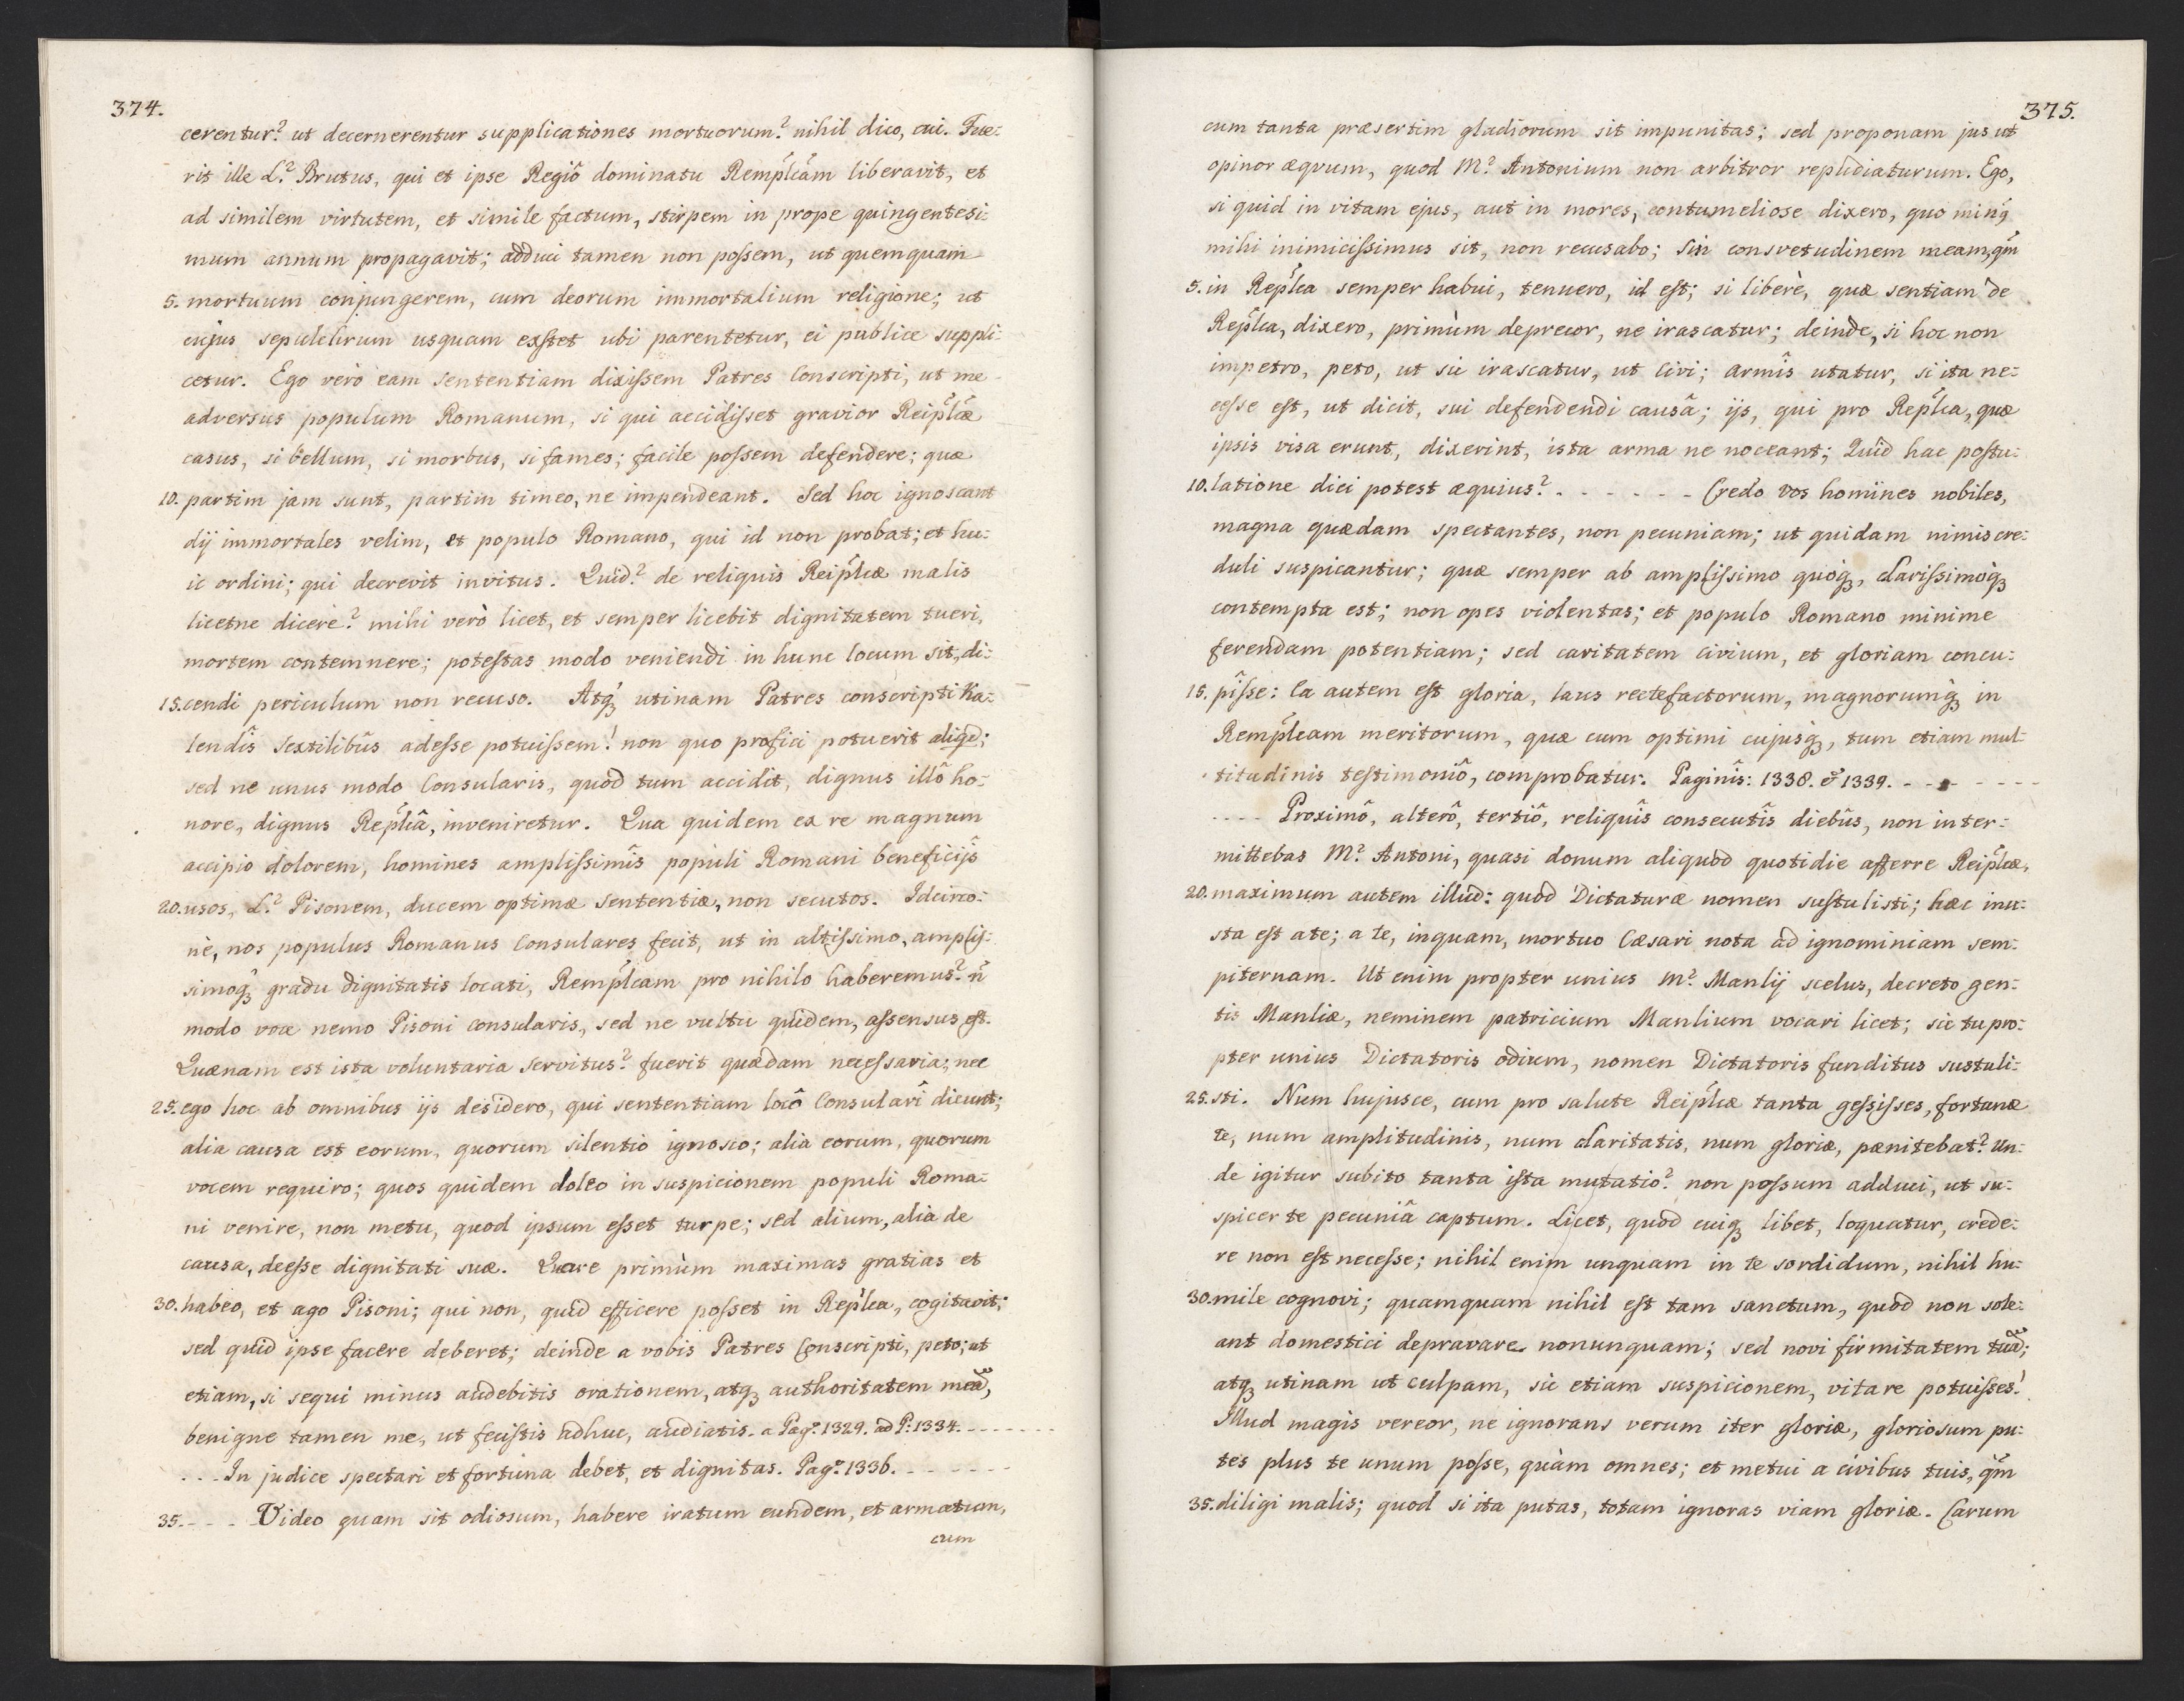 374.
cerentur? ut decernerentur supplicationes mortuorum? nihil dico, cui. Fue:
rit ille L.? Brutus, qui et ipse Regiô dominatu Remplcam liberavit, et
ad similem virtutem, et simile factum, stirpem in prope quingentesi:
mum annum propagavit; adduci tamen non possem, ut quemquam
5. mortuum conjungerem, cum deorum immortalium religione; ut
cujus sepulchrum usquam exstet ubi parentetur, ei publice suppli:
cetur. Ego verò eam sententiam dixissem Patres Conscripti, ut me
adversus populum Romanum, si qui accidisset gravior Reiplcæ
casus, si bellum, si morbus, si fames; facile possem defendere; quæ
10. partim jam sunt, partim timeo, ne impendeant. Sed hoc ignoscant
dij immortales velim, et populo Romano, qui id non probat; et hu:
ic ordini; qui decrevit invitus. Quid? de reliquis Reiplcæ malis
licetne dicere? mihi verò licet, et semper licebit dignitatem tueri,
mortem contemnere; potestas modo veniendi in hunc locum sit, di:
15. cendi periculum non recuso. Atq3 utinam Patres conscripti Ka:
lendîs Sextilibûs adesse potuissem! non quo profici potuerit aliqd;
sed ne unus modo Consularis, quod tum accidit, dignus illô ho:
nore, dignus Replcâ, inveniretur. Qua quidem ex re magnum
accipio dolorem, homines amplissimîs populi Romani beneficijs
20. usos, L.? Pisonem, ducem optimæ sententiæ, non secutos. Idcirco:
nè, nos populus Romanus Consulares fecit, ut in altissimo, amplis:
simoq3 gradu dignitatis locati, Remplcam pro nihilo haberemus? ñ
modo voce nemo Pisoni consularis, sed ne vultu quidem, assensus est.
Quænam est ista voluntaria servitus? fuerit quædam necessaria; nec
25. ego hoc ab omnibus ijs desidero, qui sententiam locô Consularî dicunt;
alia causa est eorum, quorum silentio ignosco; alia eorum, quorum
vocem requiro; quos quidem doleo in suspicionem populi Roma:
ni venire, non metu, quod ipsum esset turpe; sed alium, alia de
causa, deesse dignitati suæ. Quare primùm maximas gratias et
30. habeo, et ago Pisoni; qui non, quid efficere posset in Replca, cogitavit;
sed quid ipse facere deberet; deinde a vobis Patres Conscripti, peto; ut
etiam, si sequi minus audebitis orationem, atq3 authoritatem meã,
benigne tamen me, ut fecistis adhuc, audiatis. a Pag: 1329. ad P: 1334. - - - - - - -
- - - In judice spectari et fortuna debet, et dignitas. Pag: 1336. - - - - - -
35. - - - Video quam sit odiosum, habere iratum eundem, et armatum,
cum
375.
cum tanta præsertim gladiorum sit impunitas; sed proponam jus ut
opinor æqvum, quod M? Antonium non arbitror repudiaturum. Ego,
si quid in vitam ejus, aut in mores, contumeliose dixero, quo minq
mihi inimicissimus sit, non recusabo; Sin consvetudinem meam, qm
5. in Replca semper habui, tenuero, id est; si liberè, quæ sentiam de
Replca, dixero, primùm deprecor, ne irascatur; deinde, si hoc non
impetro, peto, ut sic irascatur, ut Civi; armîs utatur, si ita ne:
cesse est, ut dicit, sui defendendi causâ; ijs, qui pro Replca, quæ
ipsis visa erunt, dixerint, ista arma ne noceant; Quid hac postu:
10. latione dici potest æquius? - - - - - - - Credo vos homines nobiles,
magna quædam spectantes, non pecuniam; ut quidam nimis cre:
duli suspicantur; quæ semper ab amplissimo quoq3, clarissimoq3
contempta est; non opes violentas; et populo Romano minime
ferendam potentiam; sed caritatem civium, et gloriam concu:
15. pisse: Ea autem est gloria, laus rectefactorum, magnorumq3 in
Remplcam meritorum, quæ cum optimi cujusq3, tum etiam mul:
titudinis testimoniô, comprobatur. Paginîs: 1338. & 1339. - - - - - - -
- - - - Proximô, alterô, tertiô, reliquîs consecutîs diebûs, non inter:
mittebas M? Antoni, quasi donum aliquod quotidie afferre Reiplcæ,
20. maximum autem illud: quod Dictaturæ nomen sustulisti; hæc inu:
sta est a te; a te, inquam, mortuo Cæsari nota ad ignominiam sem:
piternam. Ut enim propter unius M? Manlij scelus, decreto gen:
tis Manliæ, neminem patricium Manlium vocari licet; sic tu pro:
pter unius Dictatoris odium, nomen Dictatoris funditus sustuli:
25. sti. Num hujusce, cum pro salute Reiplcæ tanta gessisses, fortunæ
te, num amplitudinis, num claritatis, num gloriæ, pænitebat? Un:
de igitur subito tanta ista mutatio? non possum adduci, ut su:
spicer te pecuniâ captum. Licet, quod cuiq3 libet, loquatur, crede:
re non est necesse; nihil enim unquam in te sordidum, nihil hu:
30. mile cognovi; quamquam nihil est tam sanctum, quod non sole:
ant domestici depravare nonunquam; sed novi firmitatem tuã;
atq3 utinam ut culpam, sic etiam suspicionem, vitare potuisses!
Illud magis vereor, ne ignorans verum iter gloriæ, gloriosum pu:
tes plus te unum posse, quàm omnes; et metui a civibus tuis, qm
35. diligi malis; quod si ita putas, totam ignoras viam gloriæ. Carum